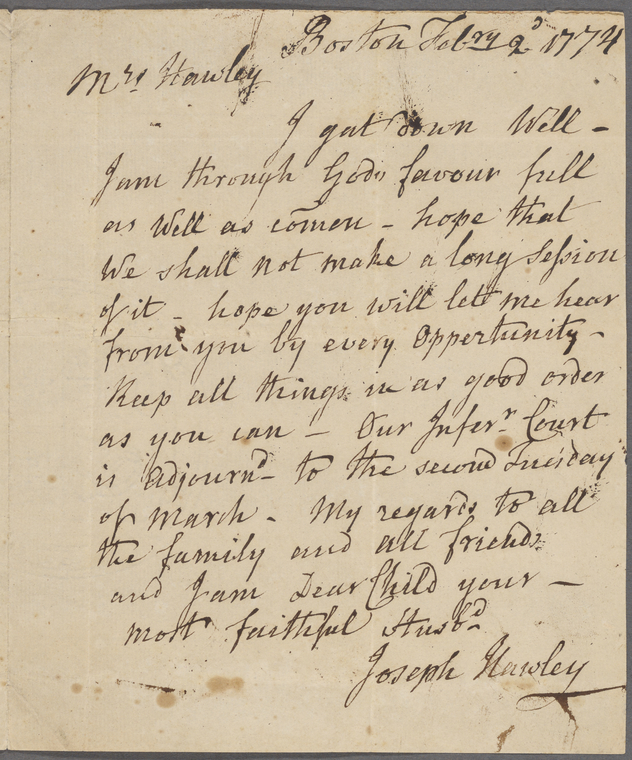 Boston Febry 2d 1774
Mrs. Hawley
I gat down Well –
I am through Gods favour full
as Well as comen – hope that
We shall not make a long Session
of it – hope you will let me hear
from you by every Oppertunity –
Keep all things in as good order
as you can – Our Inferr. Court
is adjournd – to the second Tuesday
of March – My regards to all
the family and all friends
and I am Dear Child your –
most faithful Husbd
Joseph Hawley